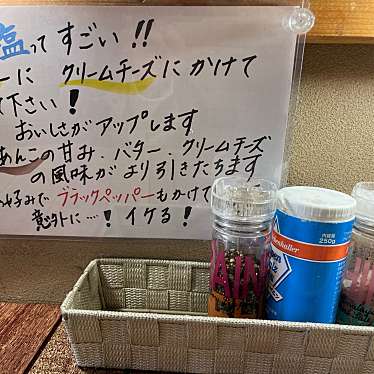 塩ってすごい!!
ーに クリームチーズにかけて
て下さい!
おいしさがアップします
あんこの甘み、バター、クリームチーズ
の風味がより引きたちます
お好みでブラックペッパーもかけて
意外に…! イケる!
内容量
250g